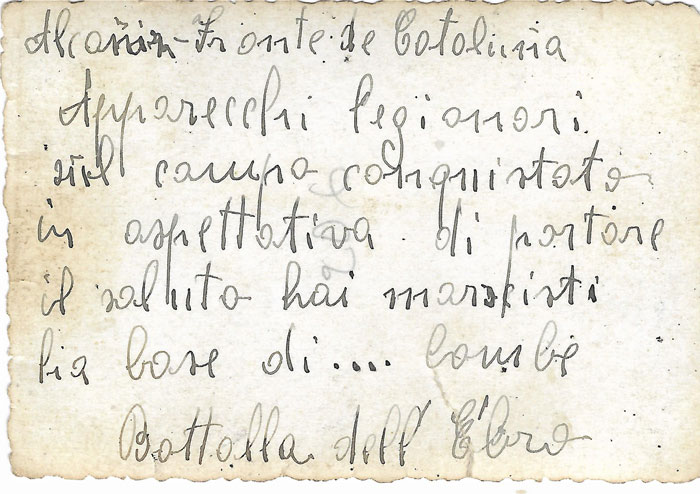 Alcañiz - Fronte de Cotoluña
Apparecchi legionari
sul campo conquistato
in aspettativa di portare
il saluto hai marxisti
bia base di.... bombe
Battalla dell' Ebro